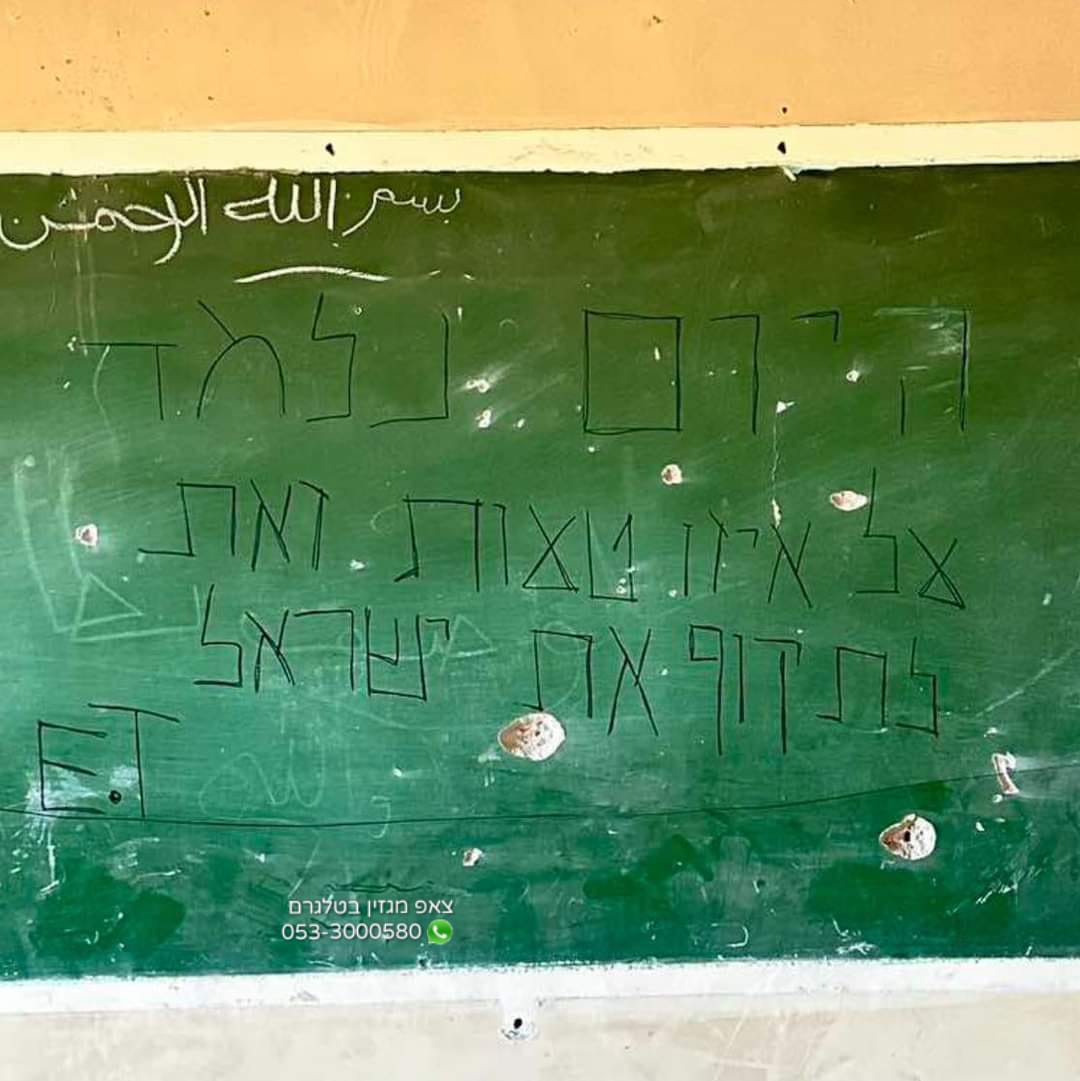 بسم الله الرحمن
היום נלמד
על איזו טעות זאת
לתקוף את ישראל
E.T
צאפ מגזין בטלגרם
053-3000580